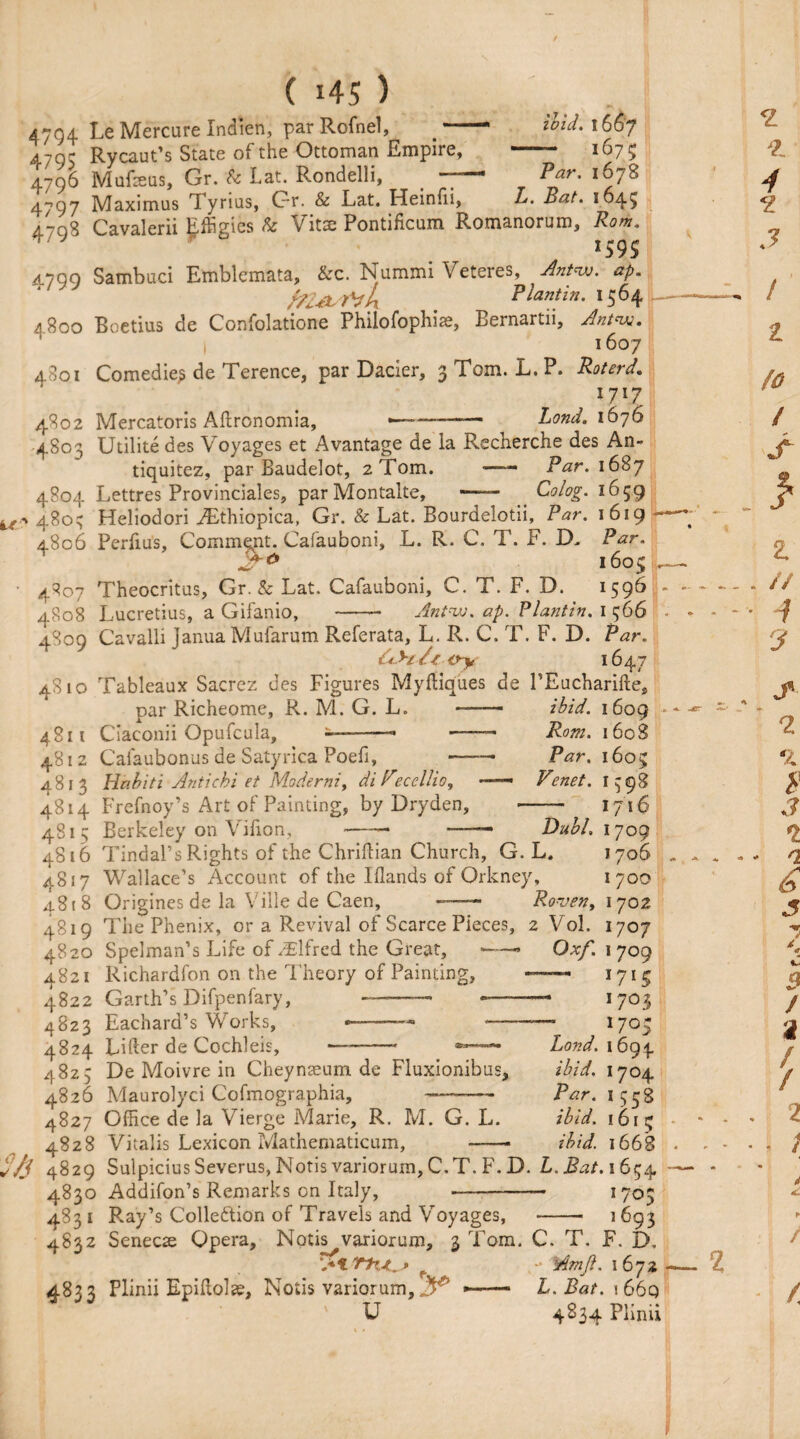 ( 145 )
4794 Le Mercure Indien, par Rosnel, —— ibid. 1667
4795 Rycaut's State of the Ottoman Empire, —— 1675
4796 Musæus, Gr. & Lat. Rondelli, —— Par. 1678
4797 Maximus Tyrius, Gr. & Lat. Heinsii, L. Bat. 1645
4798 Cavalerii Effigies & Vitæ Pontificum Romanorum, Rom.
1595
4799 Sambuci Emblemata, &c. Nummi Veteres, Antw. ap.
Plantin. 1564
4800 Boetius de Consolatione Philosophiæ, Bernartii, Antw.
1607
4801 Comedies de Terence, par Dacier, 3 Tom. L. P. Roterd.
1717
4802 Mercatoris Astronomia, —— Lond. 1676
4803 Utilité des Voyages et Avantage de la Recherche des An-
tiquitez, par Baudelot, 2 Tom. —— Par. 1687
4804 Lettres Provinciales, par Montalte, —— Colog. 1659
4805 Heliodori Æthiopica, Gr. & Lat. Bourdelotii, Par. 1619
4806 Persius, Comment. Casauboni, L. R. C. T. F. D. Par.
1605
4807 Theocritus, Gr. & Lat. Casauboni, C. T. F. D. 1596
4808 Lucretius, a Gifanio, —— Antw. ap. Plantin. 1566
4809 Cavalli Janua Musarum Reserata, L. R. C. T. F. D. Par.
1647
4810 Tableaux Sacrez des Figures Mystiques de l'Euchariste,
par Richeome, R. M. G. L. —— ibid. 1609
4811 Ciaconii Opuscula, —— —— Rom. 1608
4812 Casaubonus de Satyrica Poesi, —— Par. 1605
4813 Habiti Antichi et Moderni, di Vecellio, —— Venet. 1598
4814 Fresnoy's Art of Painting, by Dryden, —— 1716
4815 Berkeley on Vision, —— —— Dubl. 1709
4816 Tindal's Rights of the Christian Church, G. L. 1706
4817 Wallace's Account of the Islands of Orkney, 1700
4818 Origines de la Ville de Caen, —— Roven, 1702
4819 The Phenix, or a Revival of Scarce Pieces, 2 Vol. 1707
4820 Spelman's Life of Ælfred the Great, —— Oxf. 1709
4821 Richardson on the Theory of Painting, —— 1715
4822 Garth's Dispensary, —— —— 1703
4823 Eachard's Works, —— —— 1705
4824 Lister de Cochleis, —— —— Lond. 1694
4825 De Moivre in Cheynæum de Fluxionibus, ibid. 1704
4826 Maurolyci Cosmographia, —— Par. 1558
4827 Office de la Vierge Marie, R. M. G. L. ibid. 1615
4828 Vitalis Lexicon Mathematicum, —— ibid. 1668
4829 Sulpicius Severus, Notis variorum, C. T. F. D. L. Bat. 1654
4830 Addison's Remarks on Italy, —— 1705
4831 Ray's Collection of Travels and Voyages, —— 1693
4832 Senecæ Opera, Notis variorum, 3 Tom. C. T. F. D.
Amst. 1672
4833 Plinii Epistolæ, Notis variorum, —— L. Bat. 1669
U 4834 Plinii